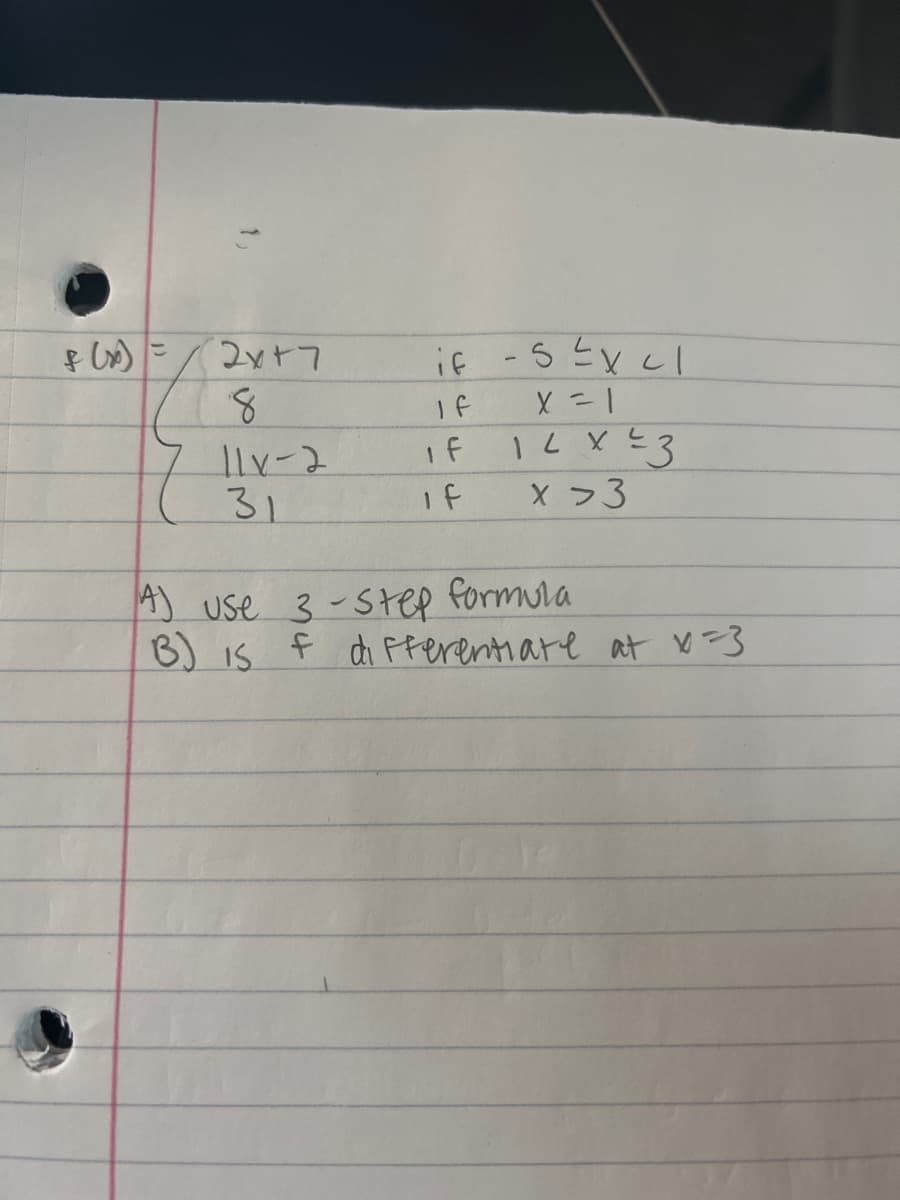 f(x) = { 2x+7 if -5 ≤ x < 1
8 if x = 1
11x-2 if 1 < x ≤ 3
31 if x > 3
A) use 3-step formula
B) is f differentiate at x=3